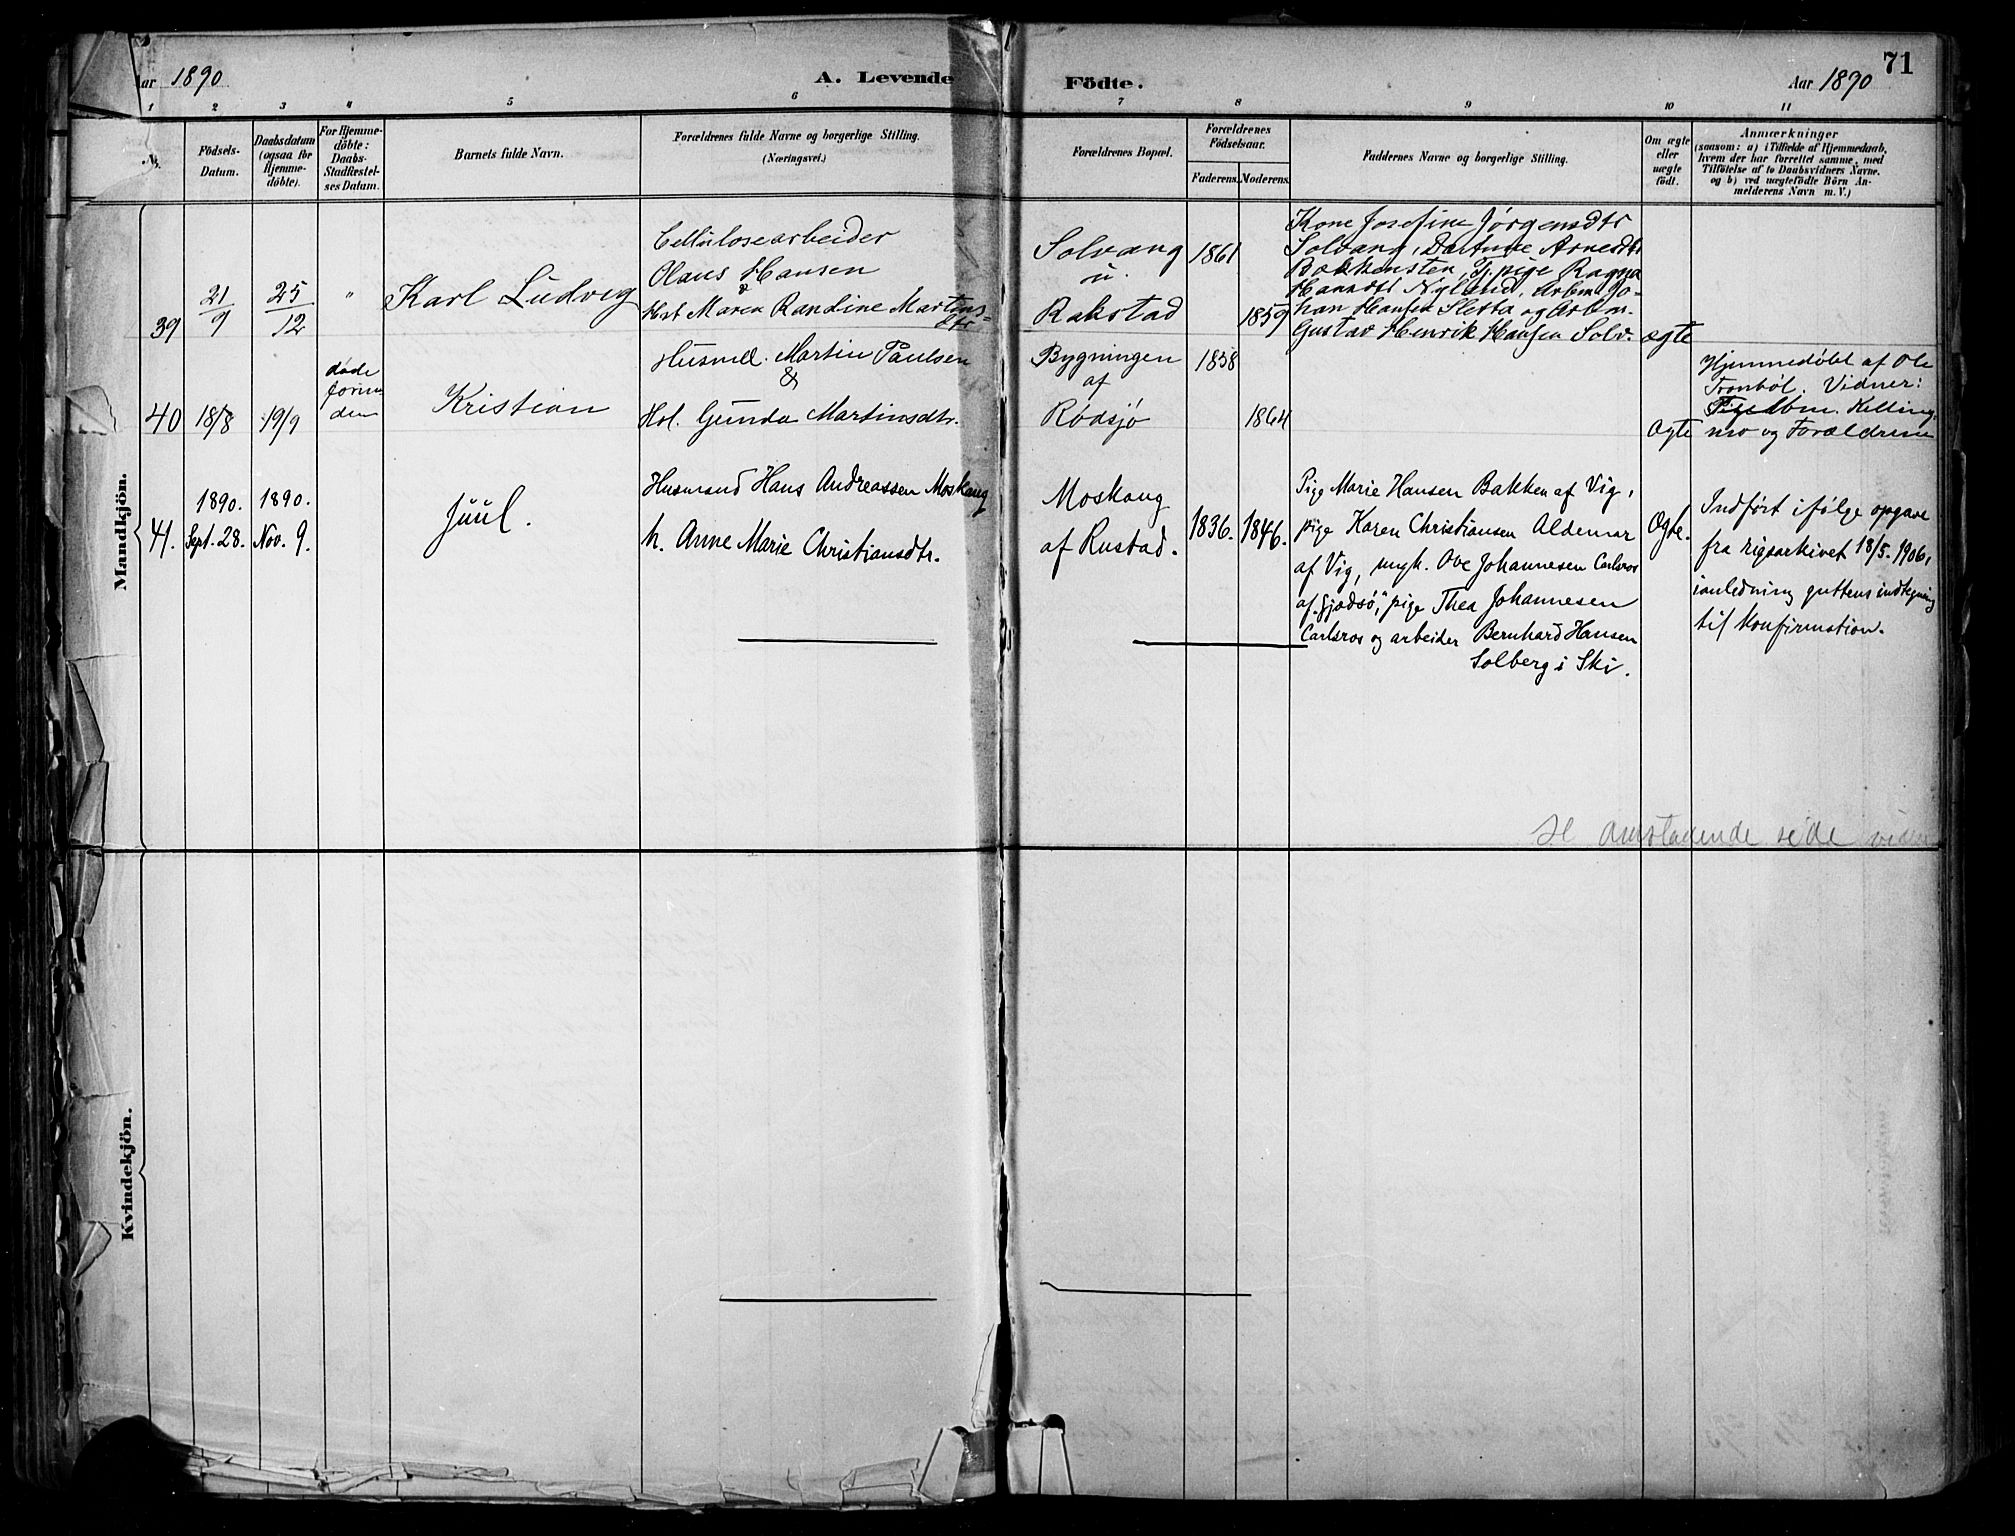 Aar 1890
A. Levende Födte.
Aar 1890
71
1 2 3 4 5 6 7 8 9 10 11
No.
Födsels-
Datum.
Daabsdatum
(ogsaa for
Hjemme-
döbte).
For Hjemme-
döbte:
Daabs-
Stadfæstel-
ses Datum.
Barnets fulde Navn.
Forældrenes fulde Navne og borgerlige Stilling.
(Næringsvei.)
Forældrenes Bopæl.
Forældrenes
Födselsaar.
Faderens. Moderens.
Faddernes Navne og borgerlige Stilling.
Om ægte
eller
uægte
födt.
Anmærkninger
(saasom: a) i Tilfælde af Hjemmedaab,
hvem der har forrettet samme, med
Tilföielse af to Daabsvidners Navne.
og b) ved uægtefödte Börn An-
melderens Navn m. V.)
Mandkjön.
39
21/9
25/12
"
Karl Ludvig
Cellulosearbeider
Olaus Hansen
&
Hst Maren Randine Martins-
dtr
Solvang
u.
Rakstad
1861
1859
Kone Josefine Jørgensdtr
Solvang, Dortine Arnedtr
Bakkensten, Tj. pige Ragna
Hansdtr Nylund, Arbm Jo-
han Hansen Sletta og Arbm.
Gustav Henrik Hansen Solv.
ægte
40
18/8
19/9
døde
forin-
den
Kristian
Husmd. Martin Paulsen
&
Hst. Gunda Martinsdtr.
Bygningen
af
Rødsjø
1858
1864
ægte
Hjemmedøbt af Ole
Tronbøl. Vidner:
og Forældrene
41.
1890.
Sept. 28.
1890.
Nov. 9.
Juul.
Husmand Hans Andreassen Moskaug
h. Anne Marie Christiansdtr.
Moskaug
af Rustad.
1836.
1846.
Pige Marie Hansen Bakken af Vig,
pige Karen Christiansen Aldemar
af Vig, ungk. Ove Johannesen Carlsros
af "Gjedsø", pige Thea Johannesen
Carlsros og arbeider Bernhard Hansen
Solberg i Ski.
Ægte.
Indført ifølge opgave
fra rigsarkivet 18/5. 1906,
i anledning guttens indtegning
til Konfirmation.
se omstaaende side
Kvindekjön.